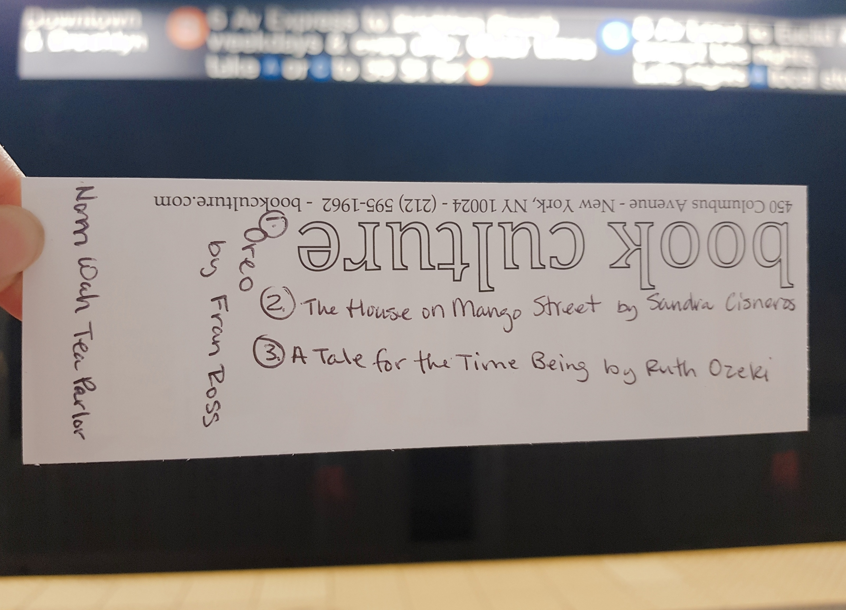 Downtown
& Brooklyn
take A or C to 59 St for
450 Columbus Avenue - New York, NY 10024 - (212) 595-1962 - bookculture.com
book culture
1. Oreo
by Fran Ross
2. The House on Mango Street by Sandra Cisneros
3. A Tale for the Time Being by Ruth Ozeki
Nom Wah Tea Parlor